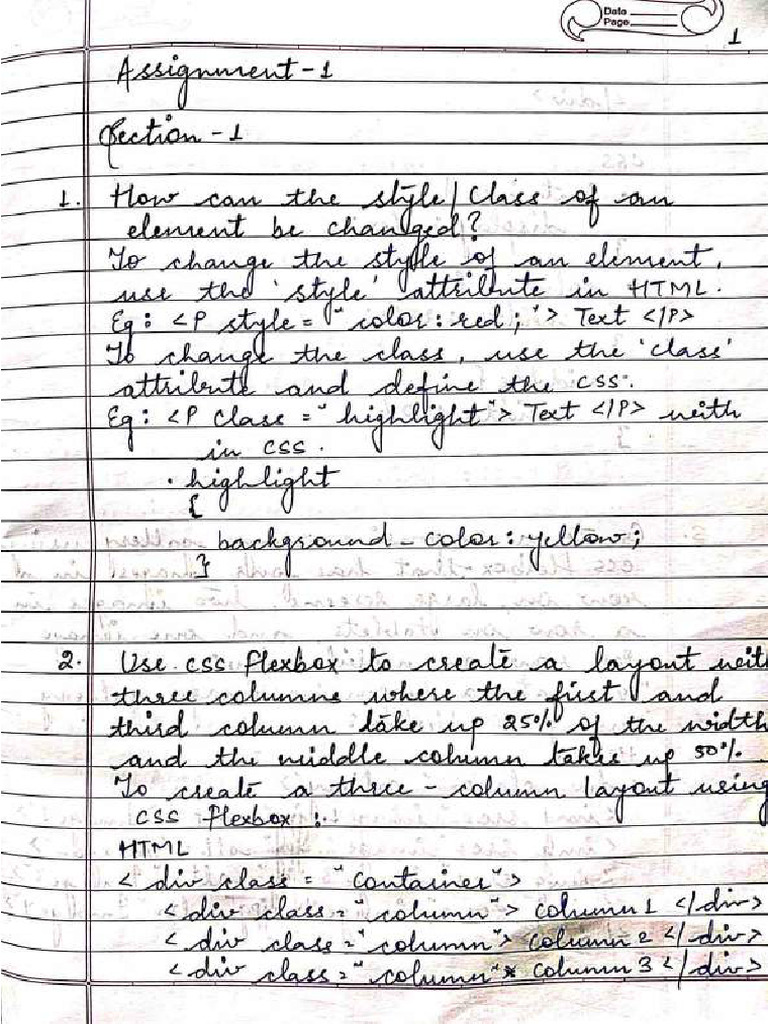 Date
Page
1
Assignment-1
Section-1
1. How can the style/Class of an
element be changed?
To change the style of an element,
use the 'style' attribute in HTML.
Eg: <P style="color:red;"> Text </P>
To change the class, use the 'class'
attribute and define the CSS.
Eg: <P Class="highlight"> Text </P> with
in CSS.
.highlight
{
background-color: yellow;
}
2. Use CSS flexbox to create a layout with
three columns where the first and
third column take up 25% of the width
and the middle column takes up 50%.
To create a three-column layout using
CSS flexbox:
HTML
<div class="container">
<div class="column"> column 1 </div>
<div class="column"> column 2 </div>
<div class="column"> column 3 </div>